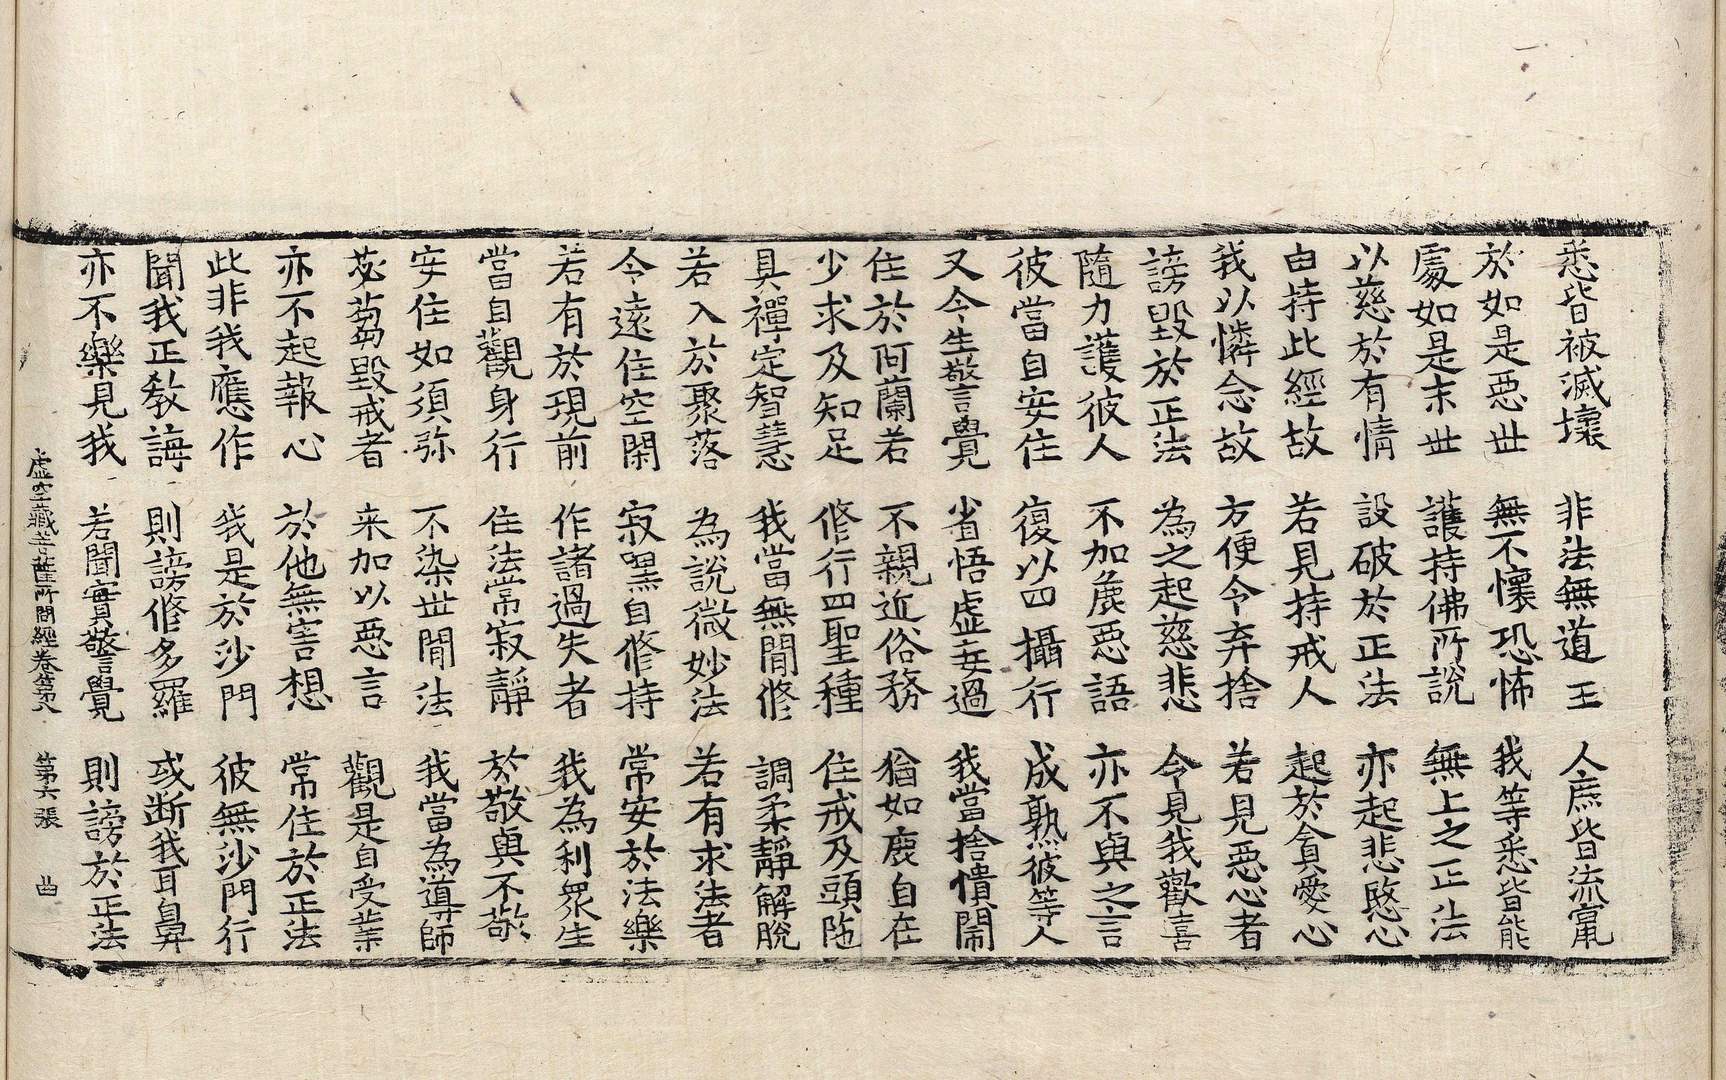 悉皆被滅壞 非法無道王 人庶皆流竄
於如是惡世 無不懷恐怖 我等悉皆能
處如是末世 護持佛所說 無上之正法
以慈於有情 設破於正法 亦起悲愍心
由持此經故 若見持戒人 起於貪愛心
我以憐念故 方便令弃捨 若見惡心者
謗毀於正法 為之起慈悲 令見我歡喜
隨力護彼人 不加麁惡語 亦不與之言
彼當自安住 復以四攝行 成熟彼等人
又令生警覺 省悟虛妄過 我當捨憒閙
住於阿蘭若 不親近俗務 猶如鹿自在
少求及知足 修行四聖種 住戒及頭陁
具禪定智慧 我當無間修 調柔靜解脫
若入於聚落 為說微妙法 若有求法者
令遠住空閑 寂黑自修持 常安於法樂
若有於現前 作諸過失者 我為利眾生
當自觀身行 住法常寂靜 於敬與不敬
安住如須弥 不染世間法 我當為導師
苾蒭毀戒者 来加以惡言 觀是自受業
亦不起報心 於他無害想 常住於正法
此非我應作 我是於沙門 彼無沙門行
聞我正教誨 則謗修多羅 或断我耳鼻
亦不樂見我 若聞實警覺 則謗於正法
虛空藏菩薩所問經卷第八 第六張 曲